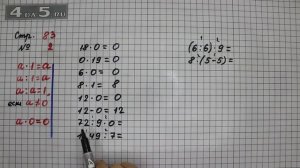 4a5.RU
Стр. 83
№ 2
a · 1 = a
a : 1 = a
a : a = 1,
если a ≠ 0
a · 0 = 0
18 · 0 = 0
0 · 19 = 0
6 · 0 = 0
8 · 1 = 8
12 · 0 = 0
12 - 0 = 12
72 : 9 · 0 =
49 : 7 =
(6 : 6) · 9 =
8 · (5 - 5) =